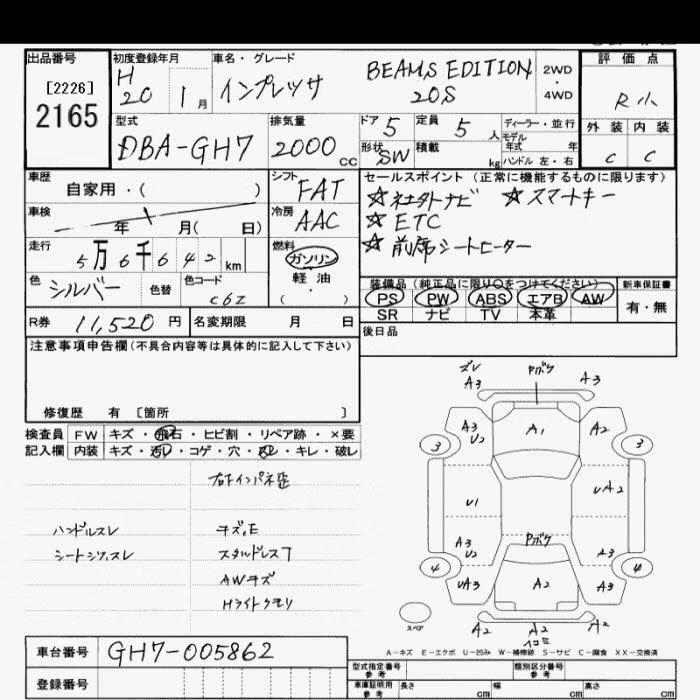 出品番号 初度登録年月 車名・グレード 評価点
[2226] H BEAMS EDITION 2WD
2165 20 1月 インプレッサ 20S ・4WD R小
型式 排気量 ドア 5 定員 5人 ディーラー・並行 外装 内装
DBA-GH7 2000cc モデル年式 年
形状 SW 積載 kg ハンドル 左・右 C C
車歴 シフト セールスポイント(正常に機能するものに限ります)
自家用・( ) FAT
車検 年 月( 日) 冷房 AAC ☆スマートキー
☆ETC
☆前席シートヒーター
走行 5万6千642km 燃料 ガソリン
軽油
( ・ )
色 シルバー 色替 色コード C6Z
装備品(純正品に限り○をつけてください) 新車保証書
PS PW ABS エアB AW 有・無
SR ナビ TV 本革
R券 11,520円 名変期限 月 日
後日品
注意事項申告欄(不具合内容等は具体的に記入して下さい)
修復歴 有 [箇所 ]
検査員 FW キズ・飛石・ヒビ割・リペア跡・×要
記入欄 内装 キズ・汚レ・コゲ・穴・スレ・キレ・破レ
ハンドルスレ キズ,E
AWキズ
Hライトクモリ
ズレ Pボケ
A3 A3
A3 U2 A1 A2
3 3
U1 UA2
A3 U2 Pボケ A3
4 4
UA3 A2 A3
スペア
A2 A2 A2
A-キズ E-エクボ U-凹み W-補修跡 S-サビ C-腐食 XX-交換済
車台番号 GH7-005862
登録番号
型式指定番号 参考 類別区分番号 参考
車庫証明用 参考 長さ cm 幅 cm 高さ cm